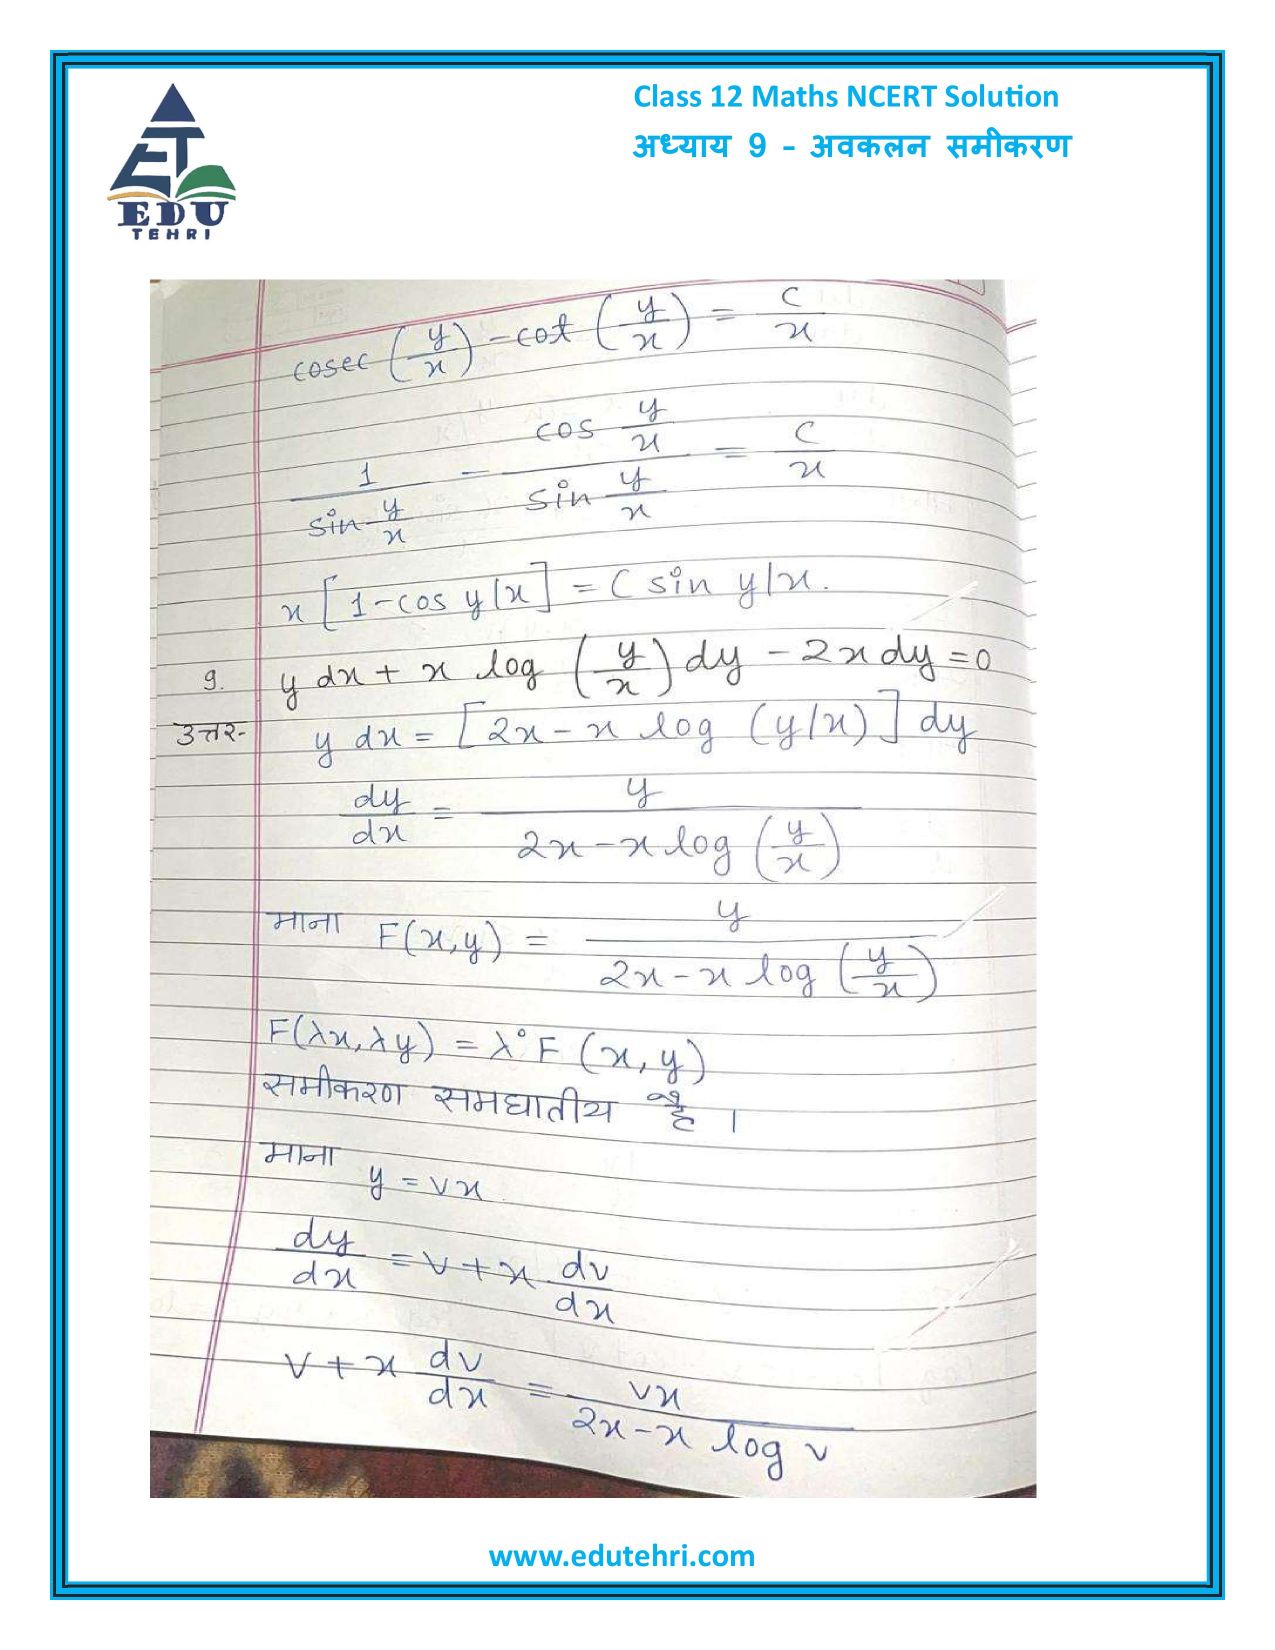 Class 12 Maths NCERT Solution
अध्याय 9 - अवकलन समीकरण
EDU
TEHRI
cosec (y/x) - cot (y/x) = c/x
1/(sin y/x) - (cos y/x)/(sin y/x) = c/x
x [1-cos y/x] = C sin y/x.
9. y dx + x log (y/x) dy - 2x dy = 0
उत्तर- y dx = [2x - x log (y/x)] dy
dy/dx = y/(2x - x log (y/x))
माना F(x,y) = y/(2x - x log (y/x))
F(λx, λy) = λ° F (x, y)
समीकरण समघातीय है ।
माना y = vx
dy/dx = v + x dv/dx
v + x dv/dx = vx/(2x - x log v)
www.edutehri.com